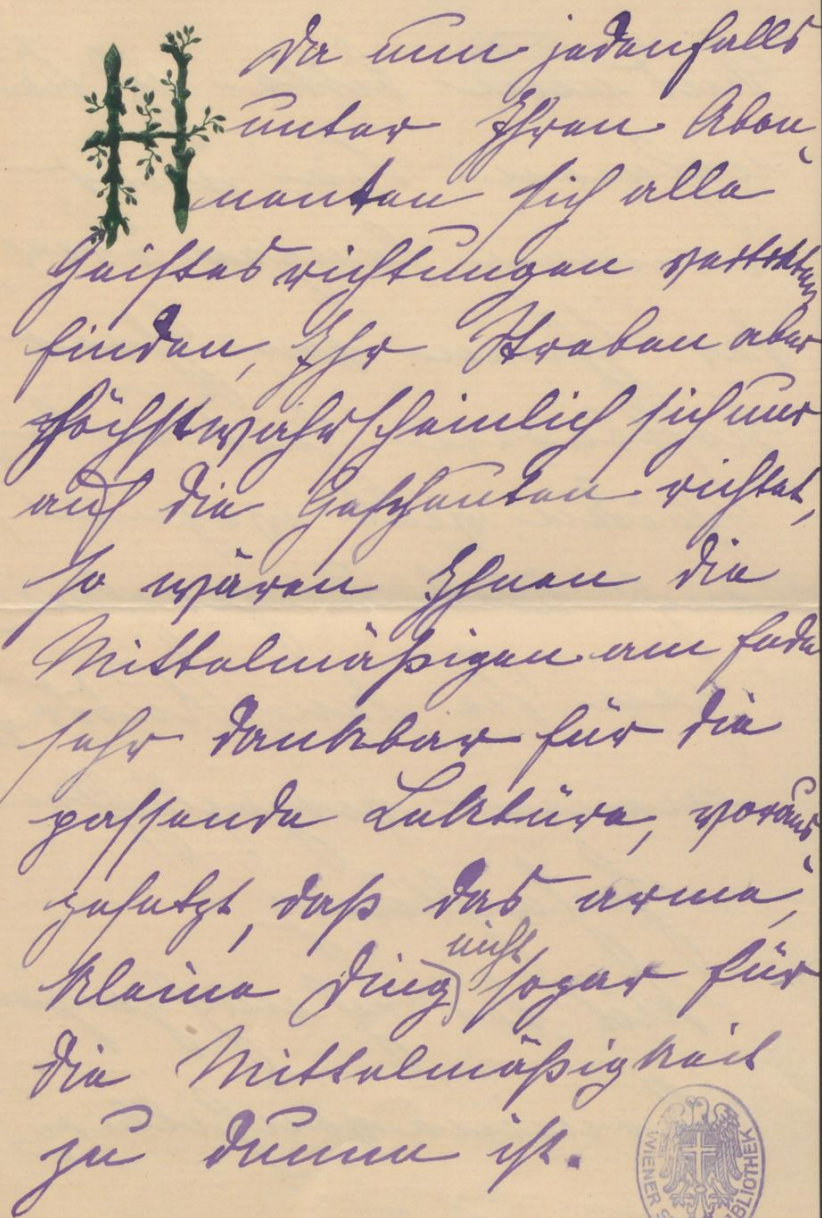 H
Da nun jedenfalls
unter Ihren Abon-
nenten sich alle
Geistesrichtungen vertreten
finden, Ihr Streben aber
höchstwahrscheinlich sich nur
auf die Gescheuten richtet,
so wären Ihnen die
Mittelmäßigen am Ende
sehr dankbar für die
passende Lektüre, voraus-
gesetzt, daß das arme,
kleine Ding nicht sogar für
die Mittelmäßigkeit
zu dumm ist.
WIENER BIBLIOTHEK